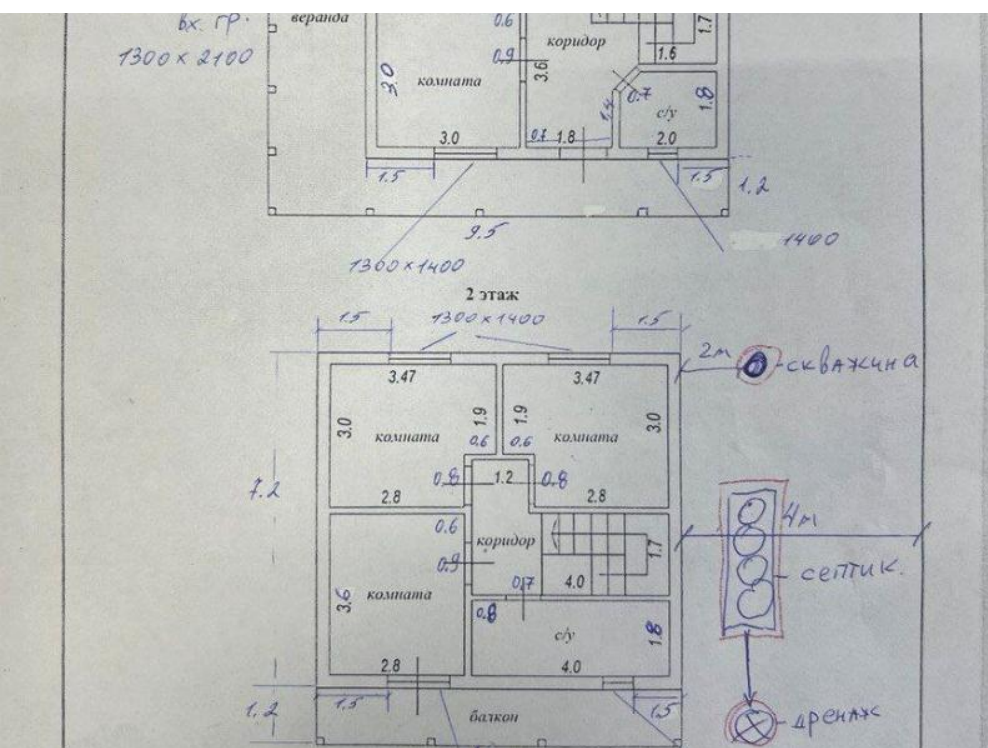 вх. гр.
1300 x 2100
веранда
0.6
коридор
0.9
3.6
1.7
1.6
3.0
комната
0.7
1.4
с/у
1.8
3.0
0.7
1.8
2.0
1.5
1.5
1.2
9.5
1400
1300 x 1400
2 этаж
1.5
1300 x 1400
1.5
2м
скважина
3.47
3.47
3.0
комната
1.9
1.9
комната
3.0
0.6
0.6
0.8
1.2
0.8
7.2
2.8
2.8
0.6
коридор
1.7
4м
0.9
септик.
3.6
комната
0.7
4.0
0.8
с/у
1.8
2.8
4.0
1.2
1.5
1.5
балкон
дренаж